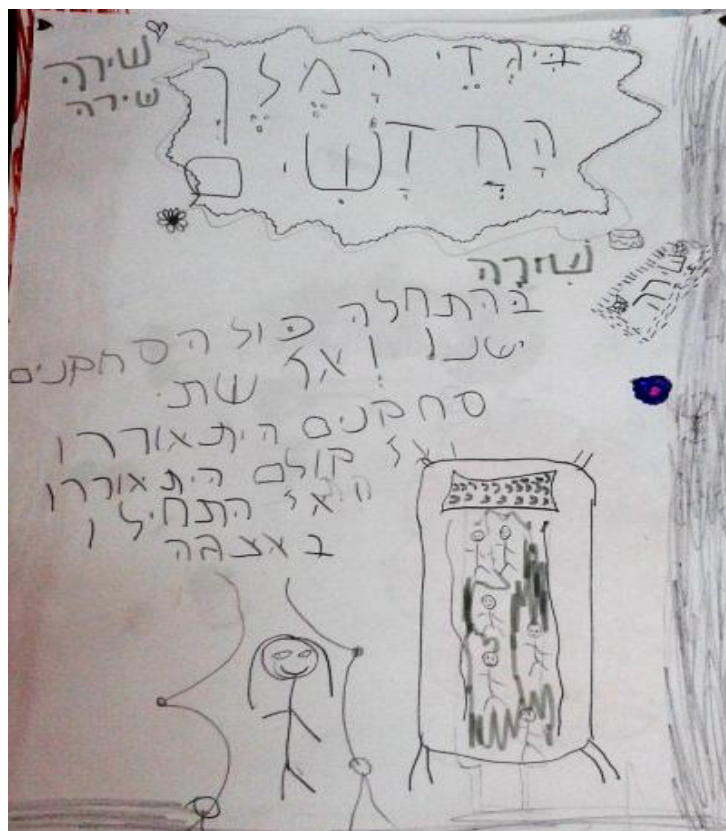 שירה
שירה
בִּיגְדֵי הַמֶּלֶךְ
הַחֲדָשִׁים
שירה
שירה
בהתחלה כול הסחקנים
ישנו ! אז שת
סחקנים היתאוררו
אז קולם היתאוררו
אז התחילו
באצגה